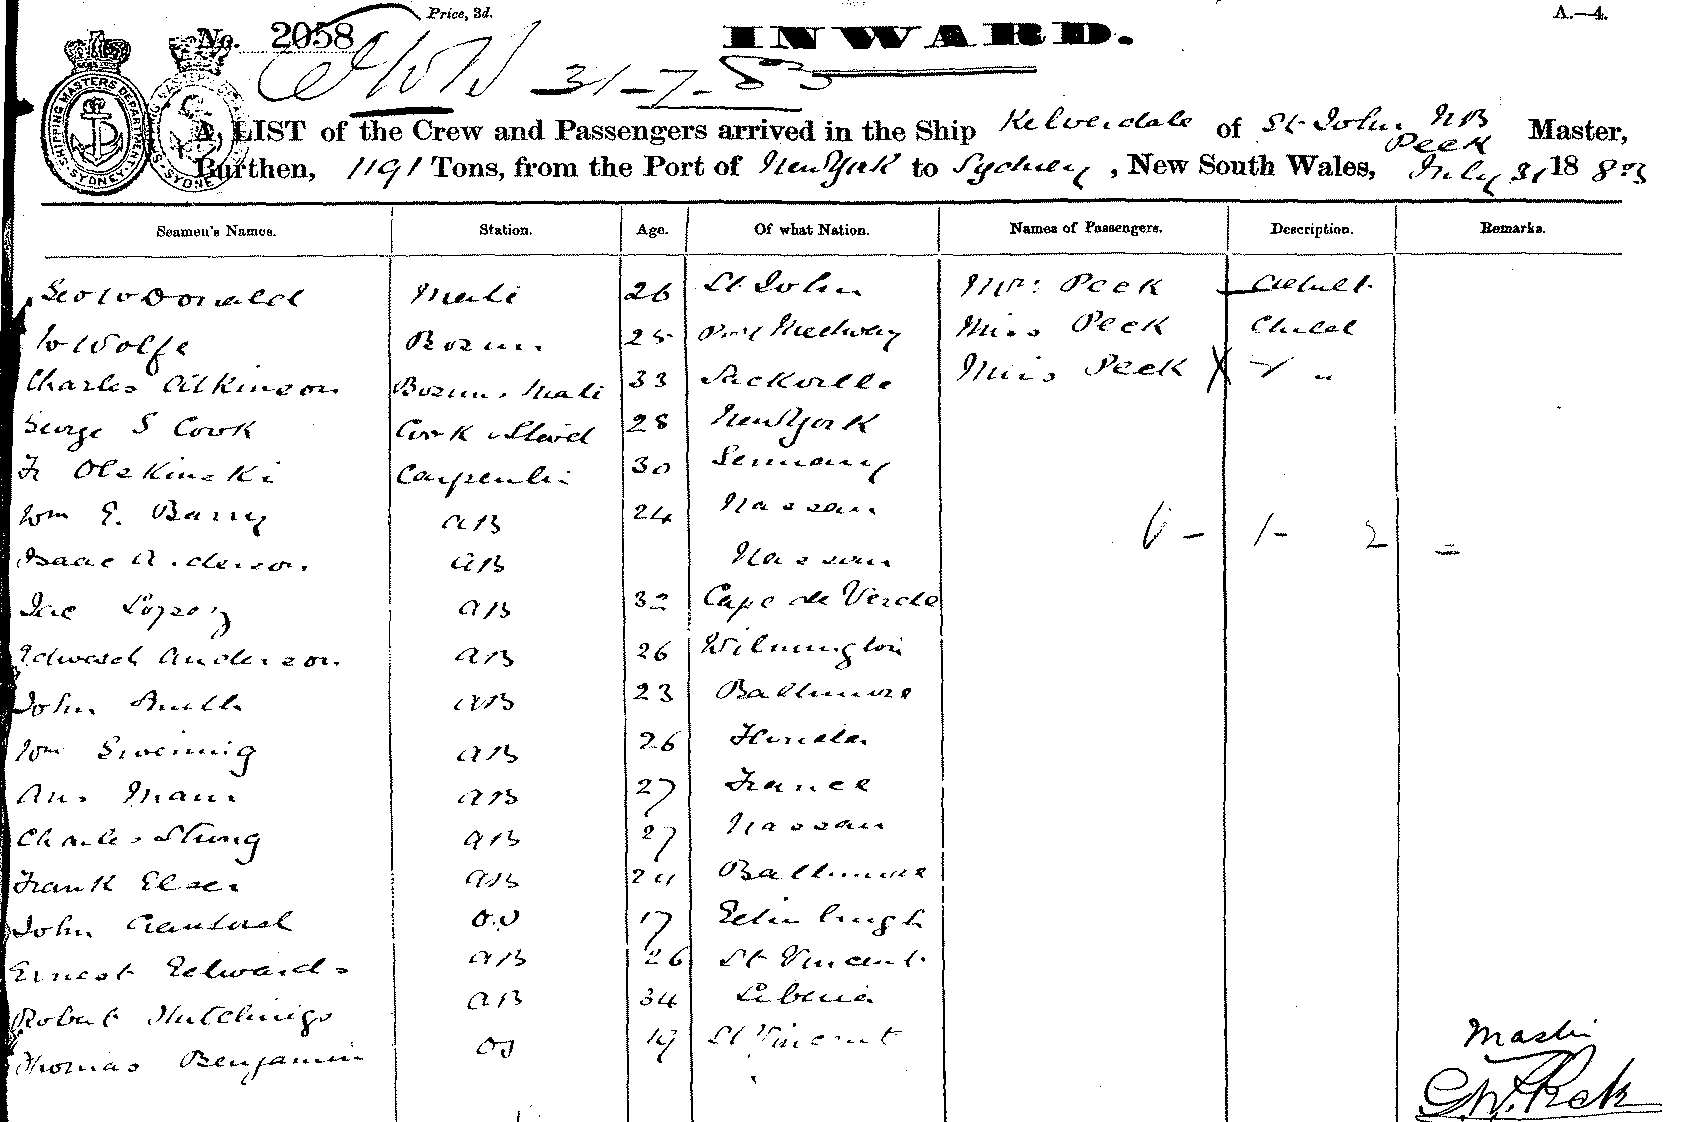 Price, 3d.
A.—4.
No. 2058
INWARD.
31-7-83
SHIPPING MASTERS DEPARTMENT SYDNEY
A LIST of the Crew and Passengers arrived in the Ship Kelverdale of St John NB Peek Master,
Burthen, 1191 Tons, from the Port of New York to Sydney, New South Wales, July 31 1883
Seamen's Names. Station. Age. Of what Nation. Names of Passengers. Description. Remarks.
Geo W Donald Mate 26 St John Mrs Peek Adult
W Wolfe Bosun 25 Port Medway Miss Peek Child
Charles Atkinson Bosuns Mate 33 Sackville Miss Peek X "
George S Cook Cook & Stwd 28 New York
Fr Olskinski Carpenter 30 Germany
Wm E. Barry AB 24 Nassau
Isaac Anderson AB Nassau
1 - 2 =
Jac Lopez AB 32 Cape de Verde
Edward Anderson AB 26 Wilmington
John Smith AB 23 Baltimore
Wm Sweinnig AB 26 Florida
AB 27 France
Charles Strong AB 27 Nassau
Frank Elsen AB 24 Baltimore
John Crawford OS 17 Edinburgh
Ernest Edwards AB 26 St Vincent
Robert Hutchings AB 34 Liberia
Thomas Benjamin OS 19 St Vincent
Master